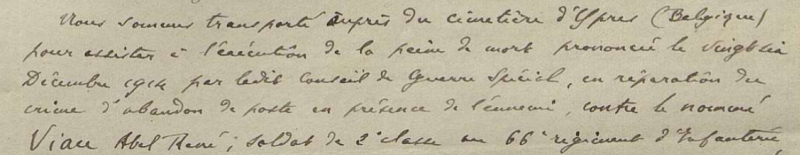 Nous sommes transporté auprès du cimetière d'Ypres (Belgique)
pour assister à l'exécution de la peine de mort prononcée le Vingt six
Décembre 1914 par ledit Conseil de Guerre Spécial, en réparation du
crime d'abandon de poste en présence de l'ennemi, contre le nommé
Viau Abel René; soldat de 2e classe au 66e régiment d'Infanterie,